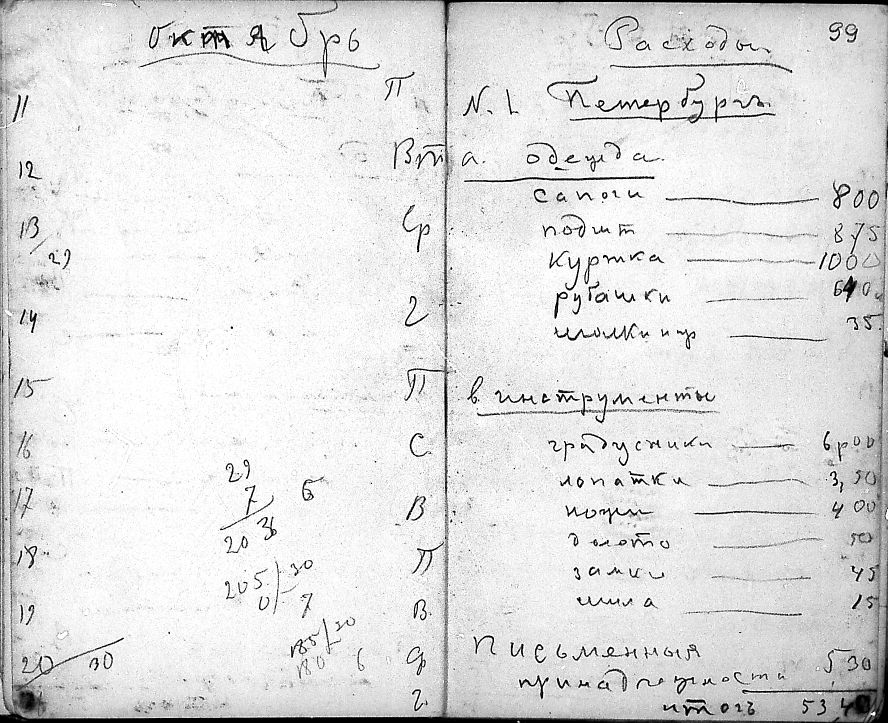 октябрь
11 П
12 Вт
13/29 Ср
14 Г
15 П
16 С.
29
7 6
17 В
20 36
18 П
205/30
0/- 7
19 В.
185/30
180 6
20 30 Ф
Г.
99
Расходы
N. 1. Петербургъ
а. одежда
сапоги 800
подшт 875
куртка 1000
рубашки 640
иголки и пр 35
в. инструменты
градусники 6р00
лопатки 3,50
ножи 400
долото 50
замки 45
шила 15
Письменныя
принадлежности 5,30
итогъ 534